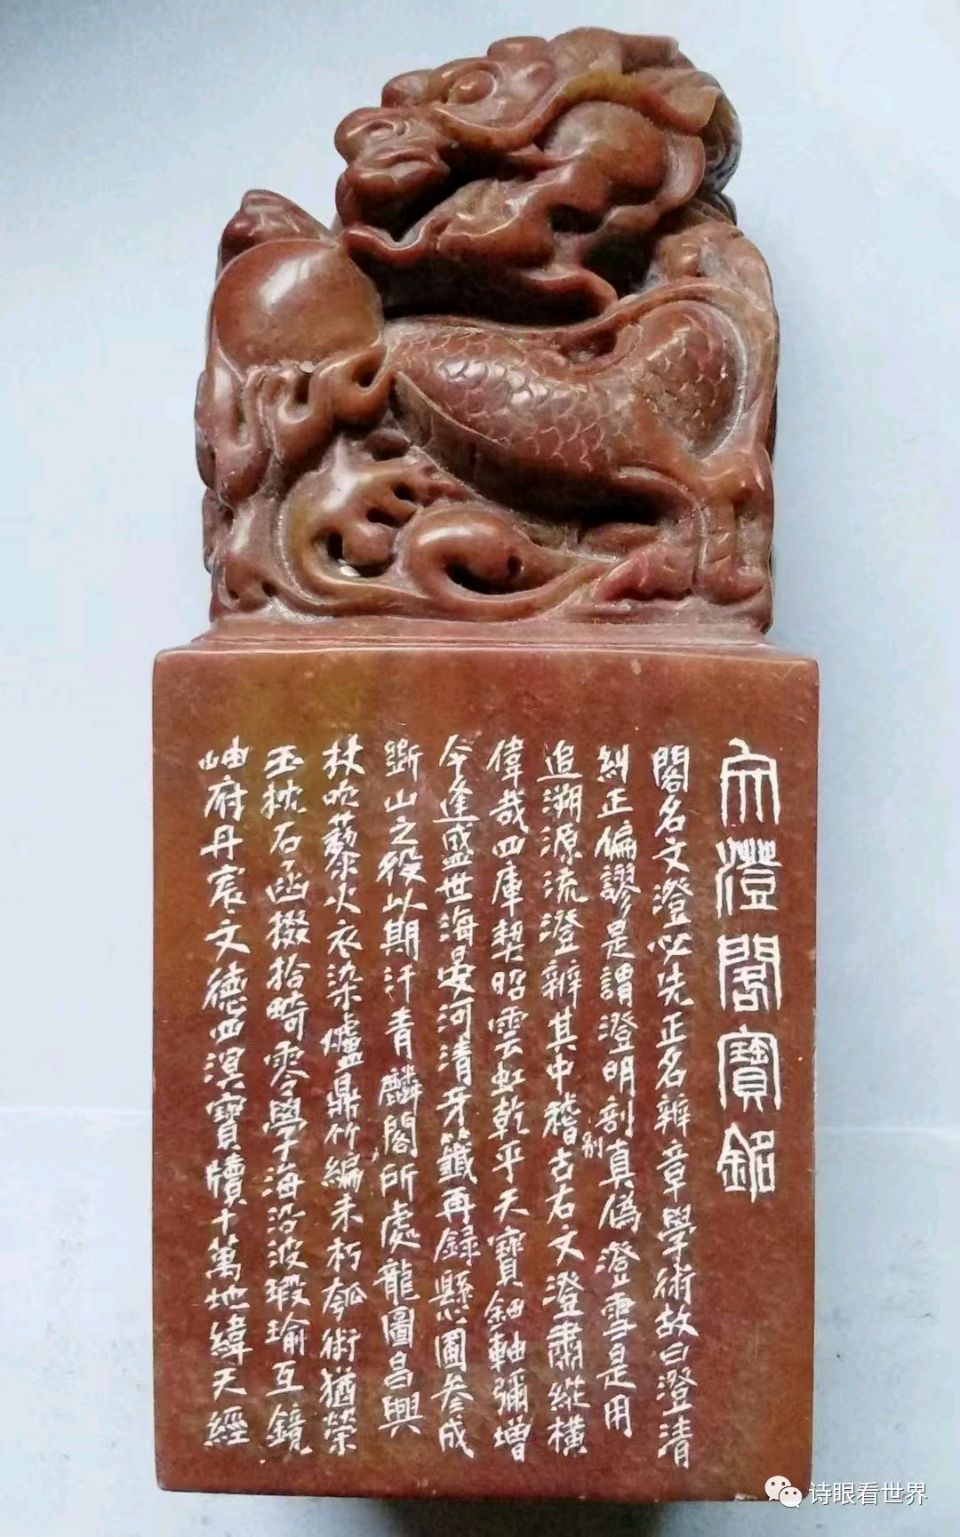 文澄閣寶銘
閣名文澄必先正名辨章學術故曰澄清
糾正偏謬是謂澄明剖別真偽澄雪是用
追溯源流澄辨其中稽古右文澄肅縱橫
偉哉四庫契昭雲虹乾平天寶鈿軸彌增
今逢盛世海晏河清牙籤再錄縣圃叁成
斷山之役以期汗青麟閣所處龍圖昌興
杖吹藜火衣染爐鼎竹編未朽瓠術猶榮
玉枕石函掇拾畸零學海沿波瑕瑜互鏡
岫府丹宸文德四溟寶牘十萬地緯天經
诗眼看世界